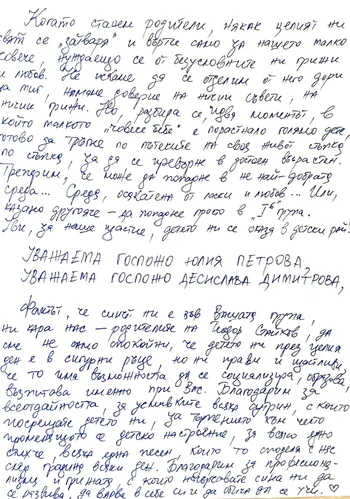 Когато станем родители, някак целият ни
свят се "затваря" и върти само за нашето малко
човече, нуждаещо се от безусловните ни грижи
и любов. Не искаме да се отделим от него дори
за миг, нямаме доверие на ничии съвети, на
ничии грижи. Но, разбира се, идва моментът, в
който малкото "човече бебе" е пораснало голямо дете,
готово да тръгне по пътеките на своя живот стъпка
по стъпка, за да се превърне в достоен възрастен.
Трепериш, че може да попадне в не най-добрата
среда... Среда, осакатена от ласки и любов... Или,
казано другояче - да попадне просто в "Iб" група.
за наше щастие, детето ни се оказа в детски рай!
УВАЖАЕМА ГОСПОЖО ЮЛИЯ ПЕТРОВА,
УВАЖАЕМА ГОСПОЖО ДЕСИСЛАВА ДИМИТРОВА,
Фактът, че синът ни е във Вашата група,
ни кара нас - родителите на Тодор да
сме не само спокойни, че детето ни през целия
ден е в сигурни ръце, но ни прави и щастливи,
че то има възможността да се социализира, образова,
възпитава именно при Вас. Благодарим за
всеотдайността, за усмивките всяка сутрин, с които
посрещате детето ни, за търпението към често
променящото се детско настроение, за всяко едно
всяка една песен, които то споделя с нас
след градина всеки ден. Благодарим за професио-
и с които насърчавате сина ни да
се развива, да вярва в себе си и да бъде